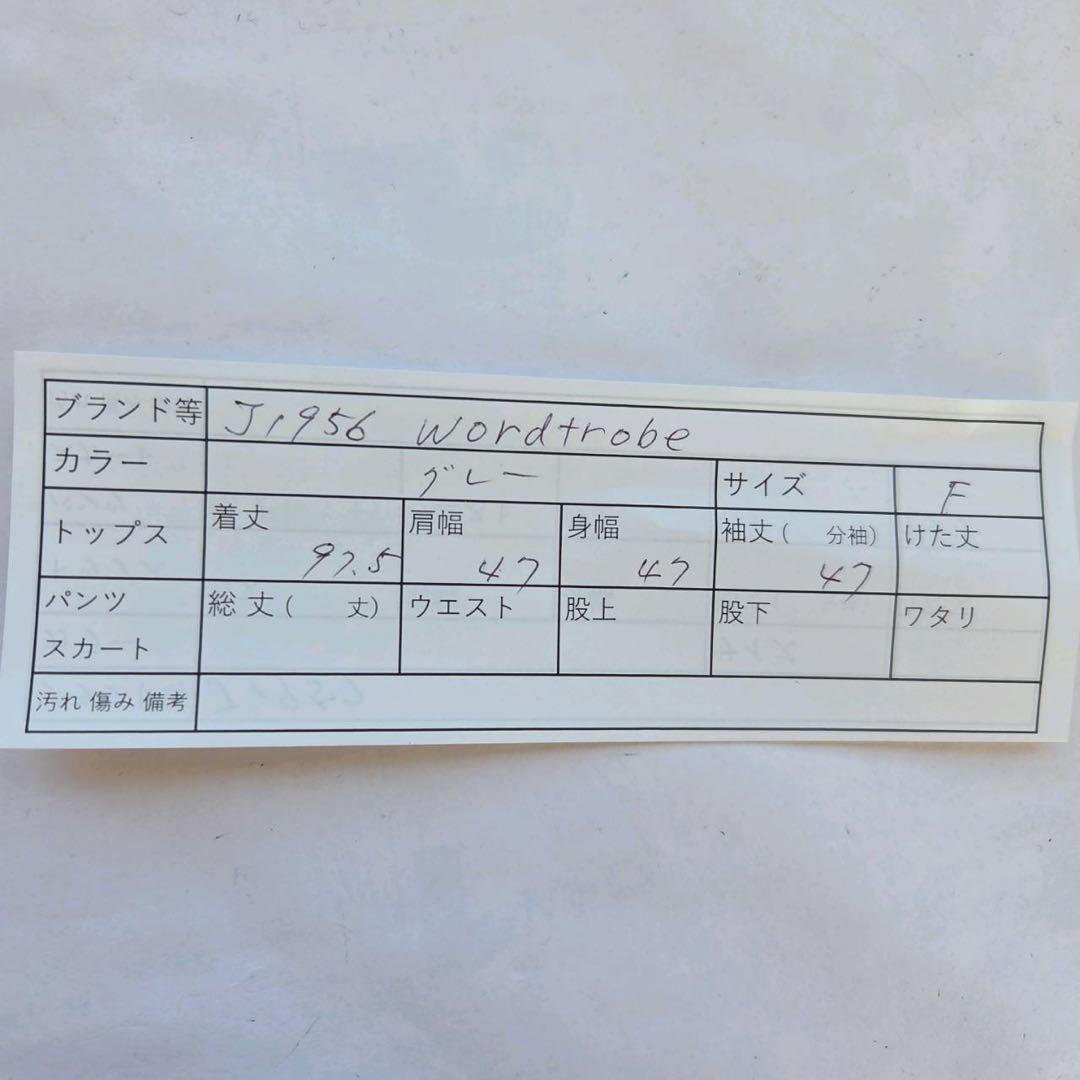 ブランド等 J1956 wordtrobe
カラー グレー サイズ F
トップス 着丈 97.5 肩幅 47 身幅 47 袖丈( 分袖) 47 けた丈
パンツ スカート 総丈( 丈) ウエスト 股上 股下 ワタリ
汚れ 傷み 備考